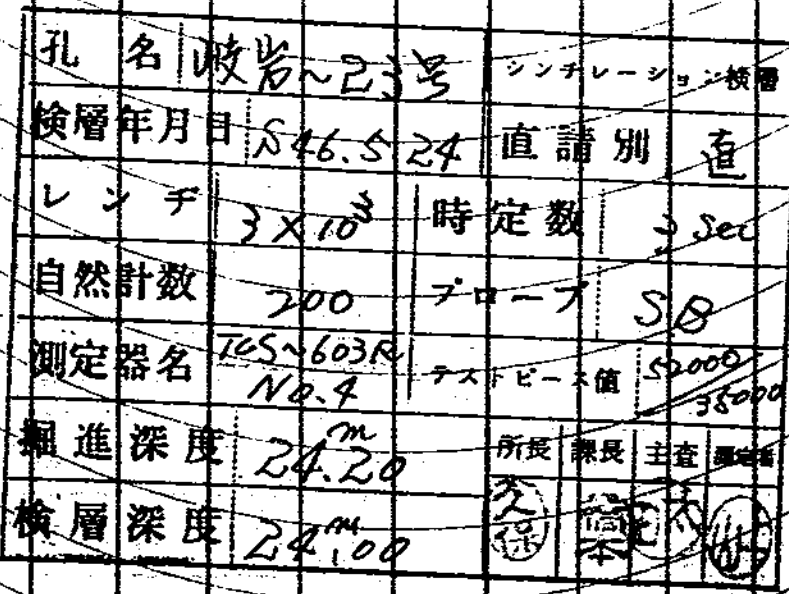 孔名 岐岩~23号 シンチレーション検層
検層年月日 S46.5.24 直請別 直
レンヂ 3×10³ 時定数 3 Sec
自然計数 200 プローブ SB
測定器名 TCS~603R No.4 テストピース値 52000/35000
掘進深度 24.20m
所長 課長 主査 測定者
検層深度 24.00m
久保 橋本